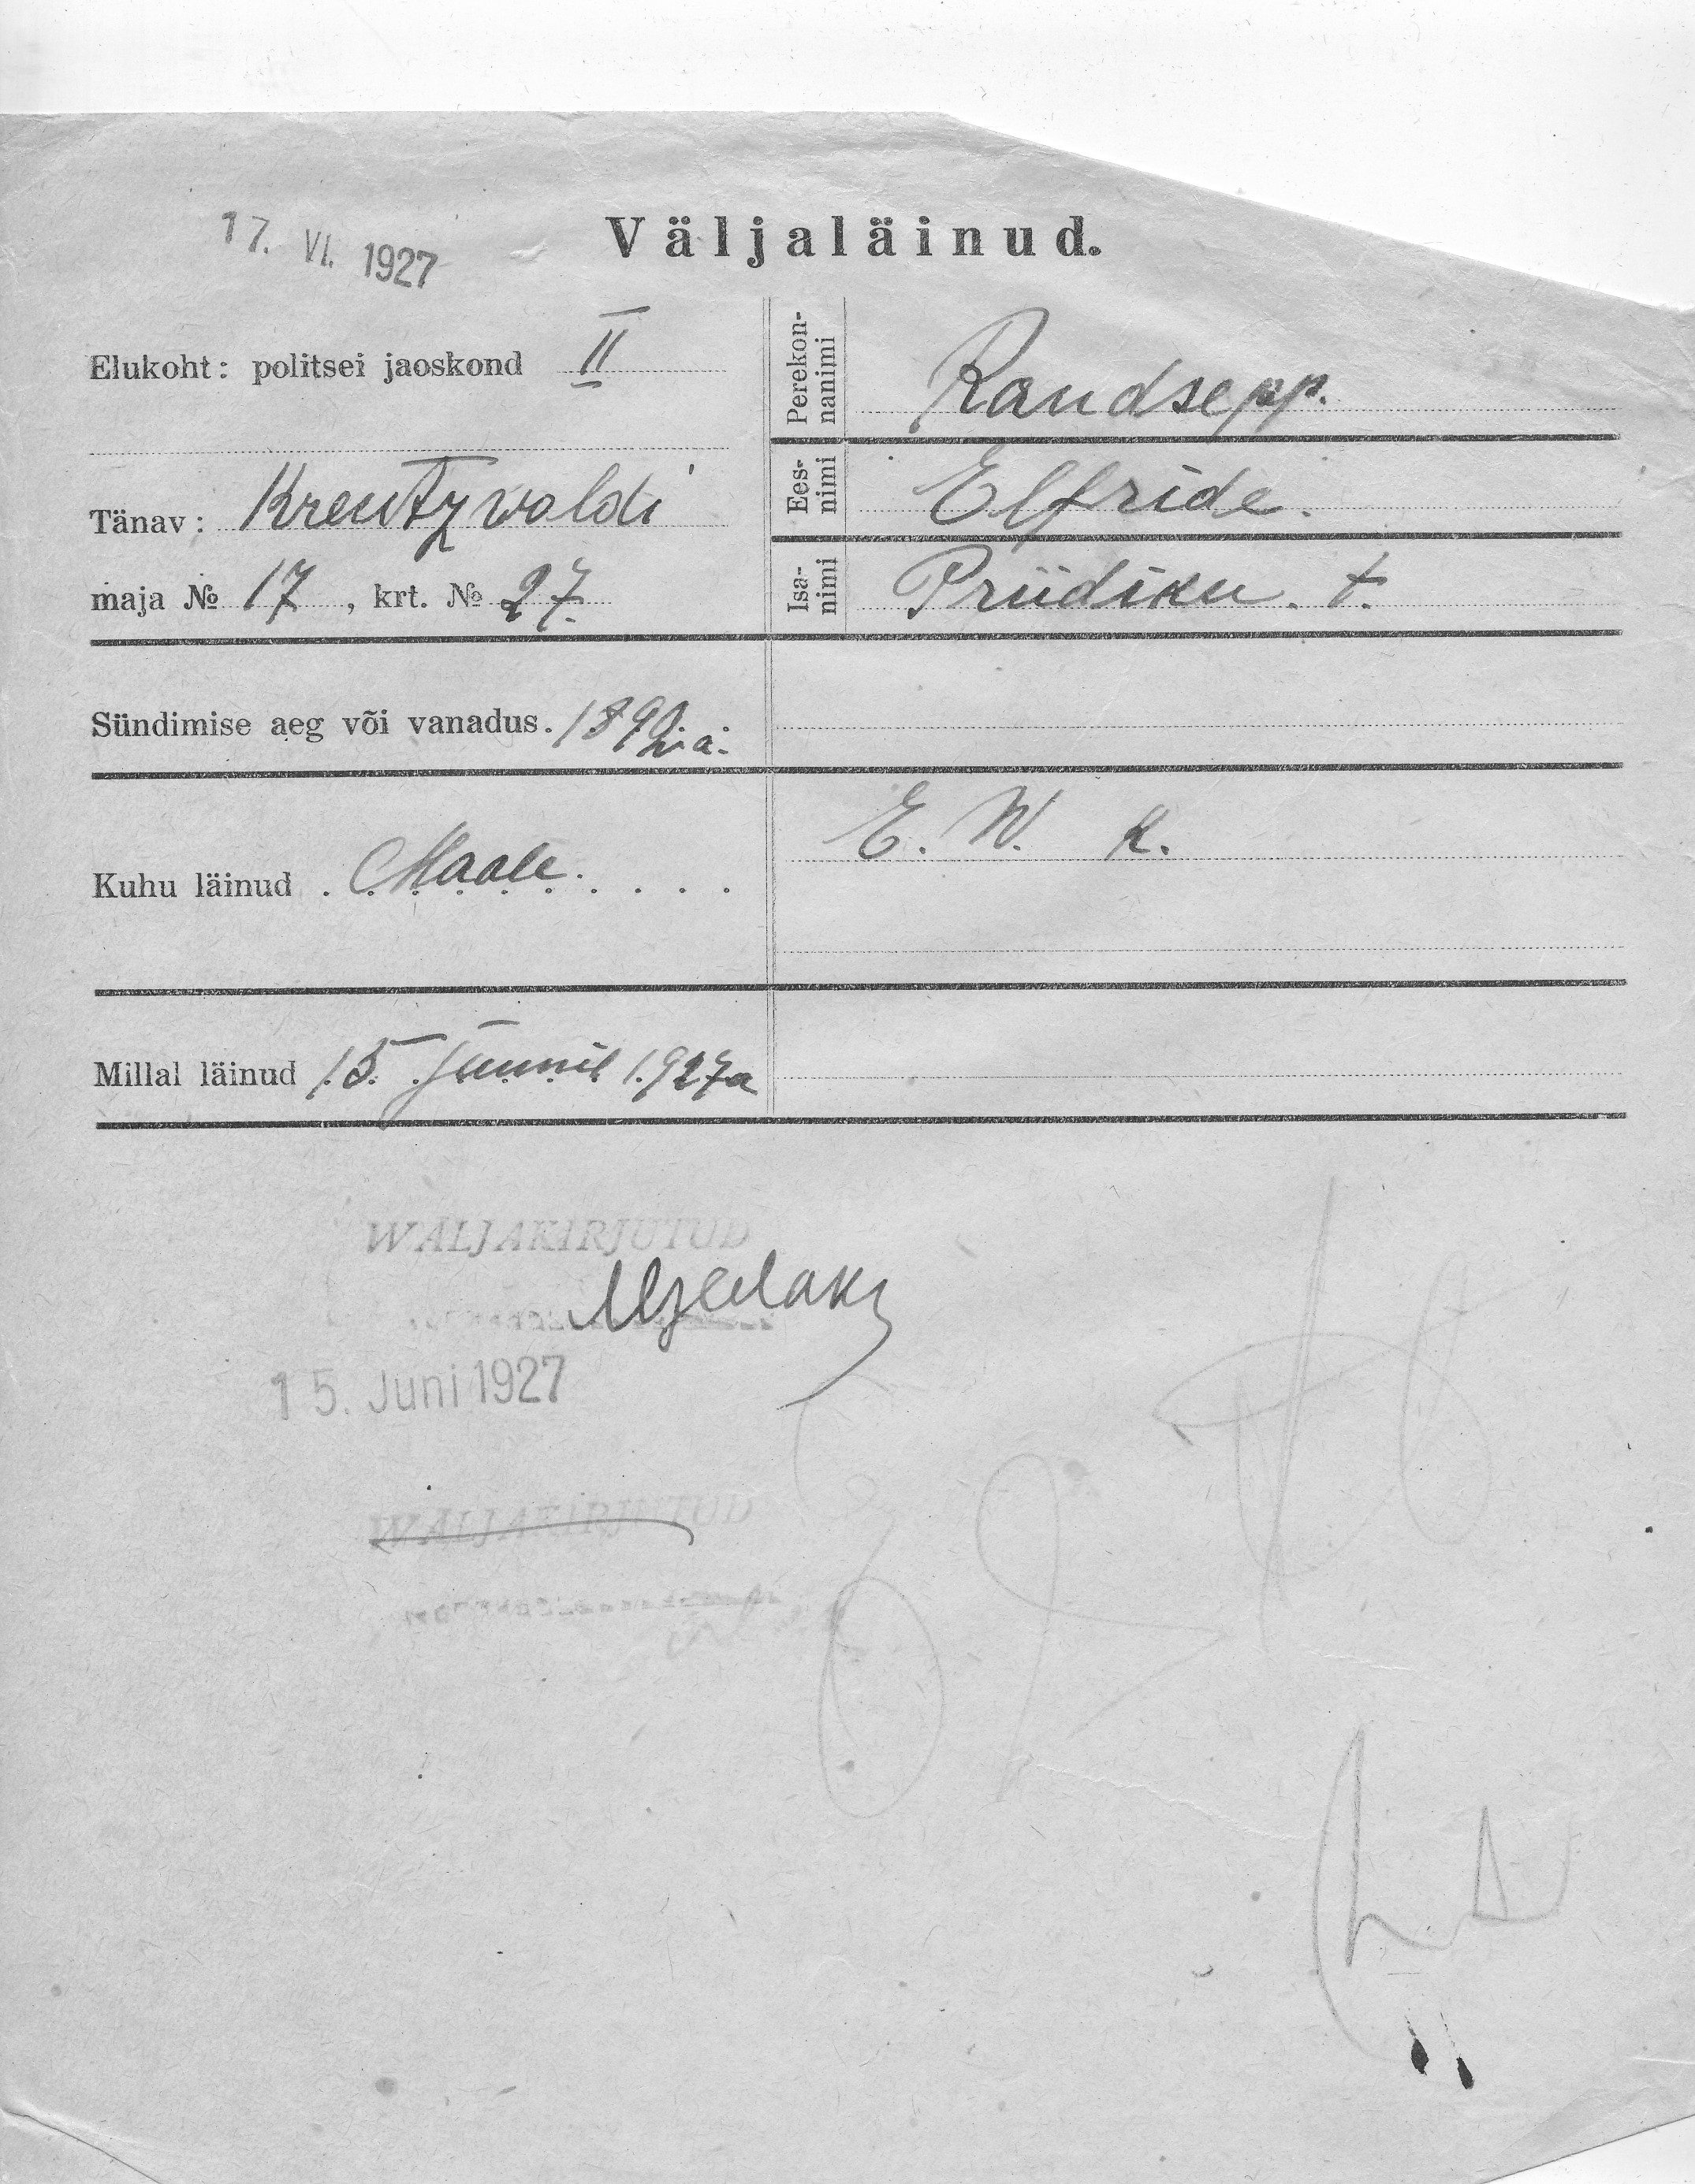 17. VI. 1927
Väljaläinud.
Elukoht: politsei jaoskond II
Tänav: Kreutzwaldi
maja № 17, krt. № 27.
Perekon-
nanimi
Randsepp.
Ees-
nimi
Elfride.
Isa-
nimi
Priidiku. t.
Sündimise aeg või vanadus.
Kuhu läinud . Maale.
E. W. k.
Millal läinud 15. Juunil 1927a
WÄLJAKIRJUTUD
15. Juni 1927
WÄLJAKIRJUTUD